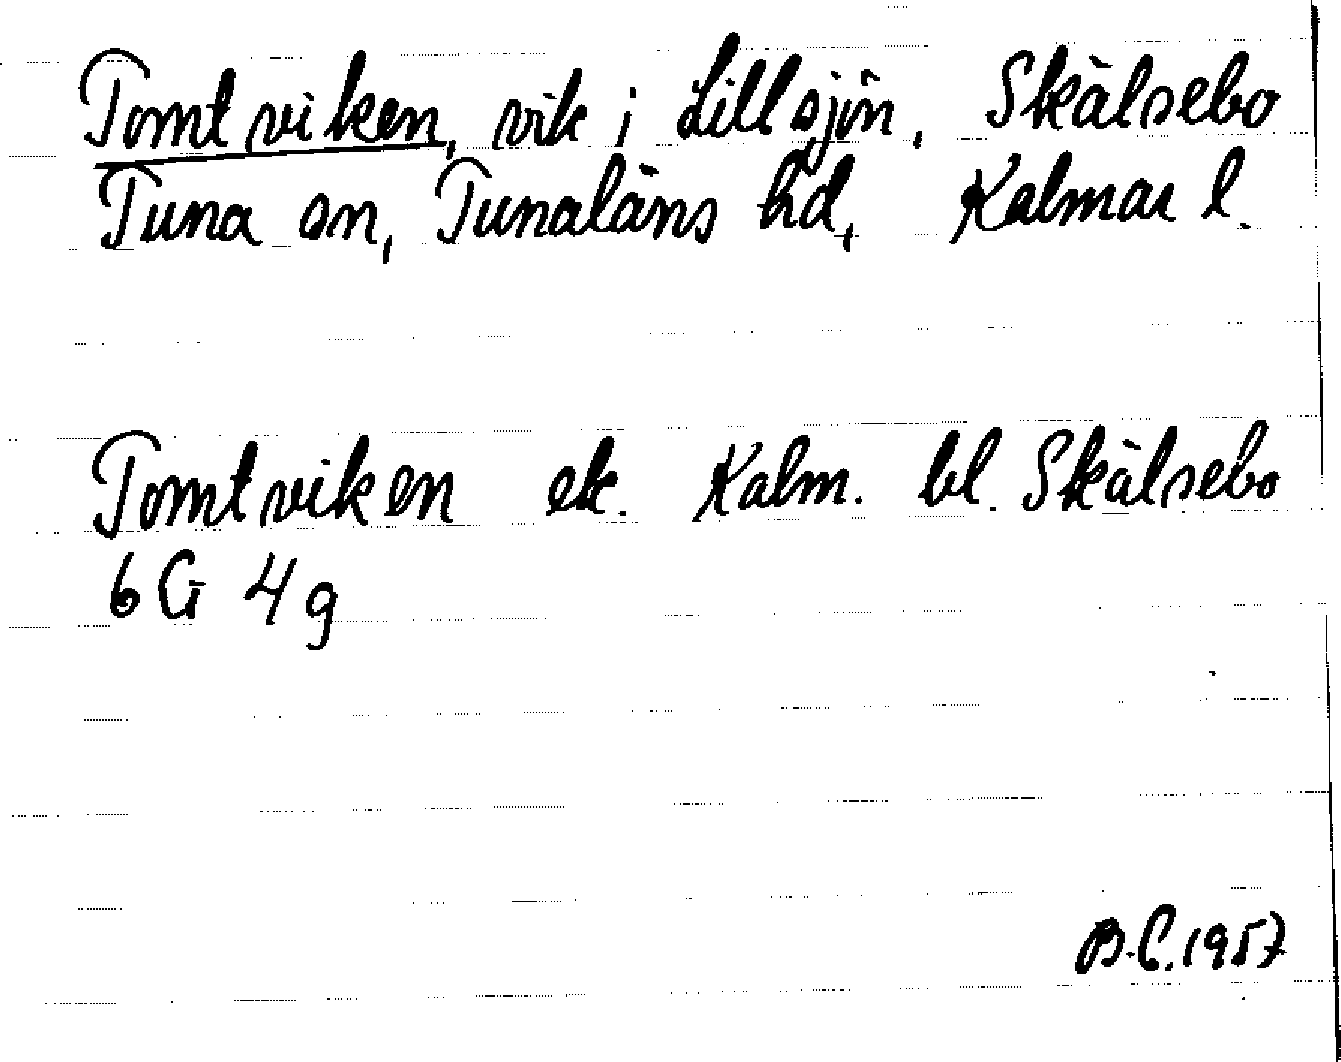 Tomtviken, vik i Lillsjön, Skälsebo
Tuna sn, Tunaläns hd, Kalmar l.
Tomtviken ek. Kalm. bl. Skälsebo
6 G 4 g
B.C. 1957